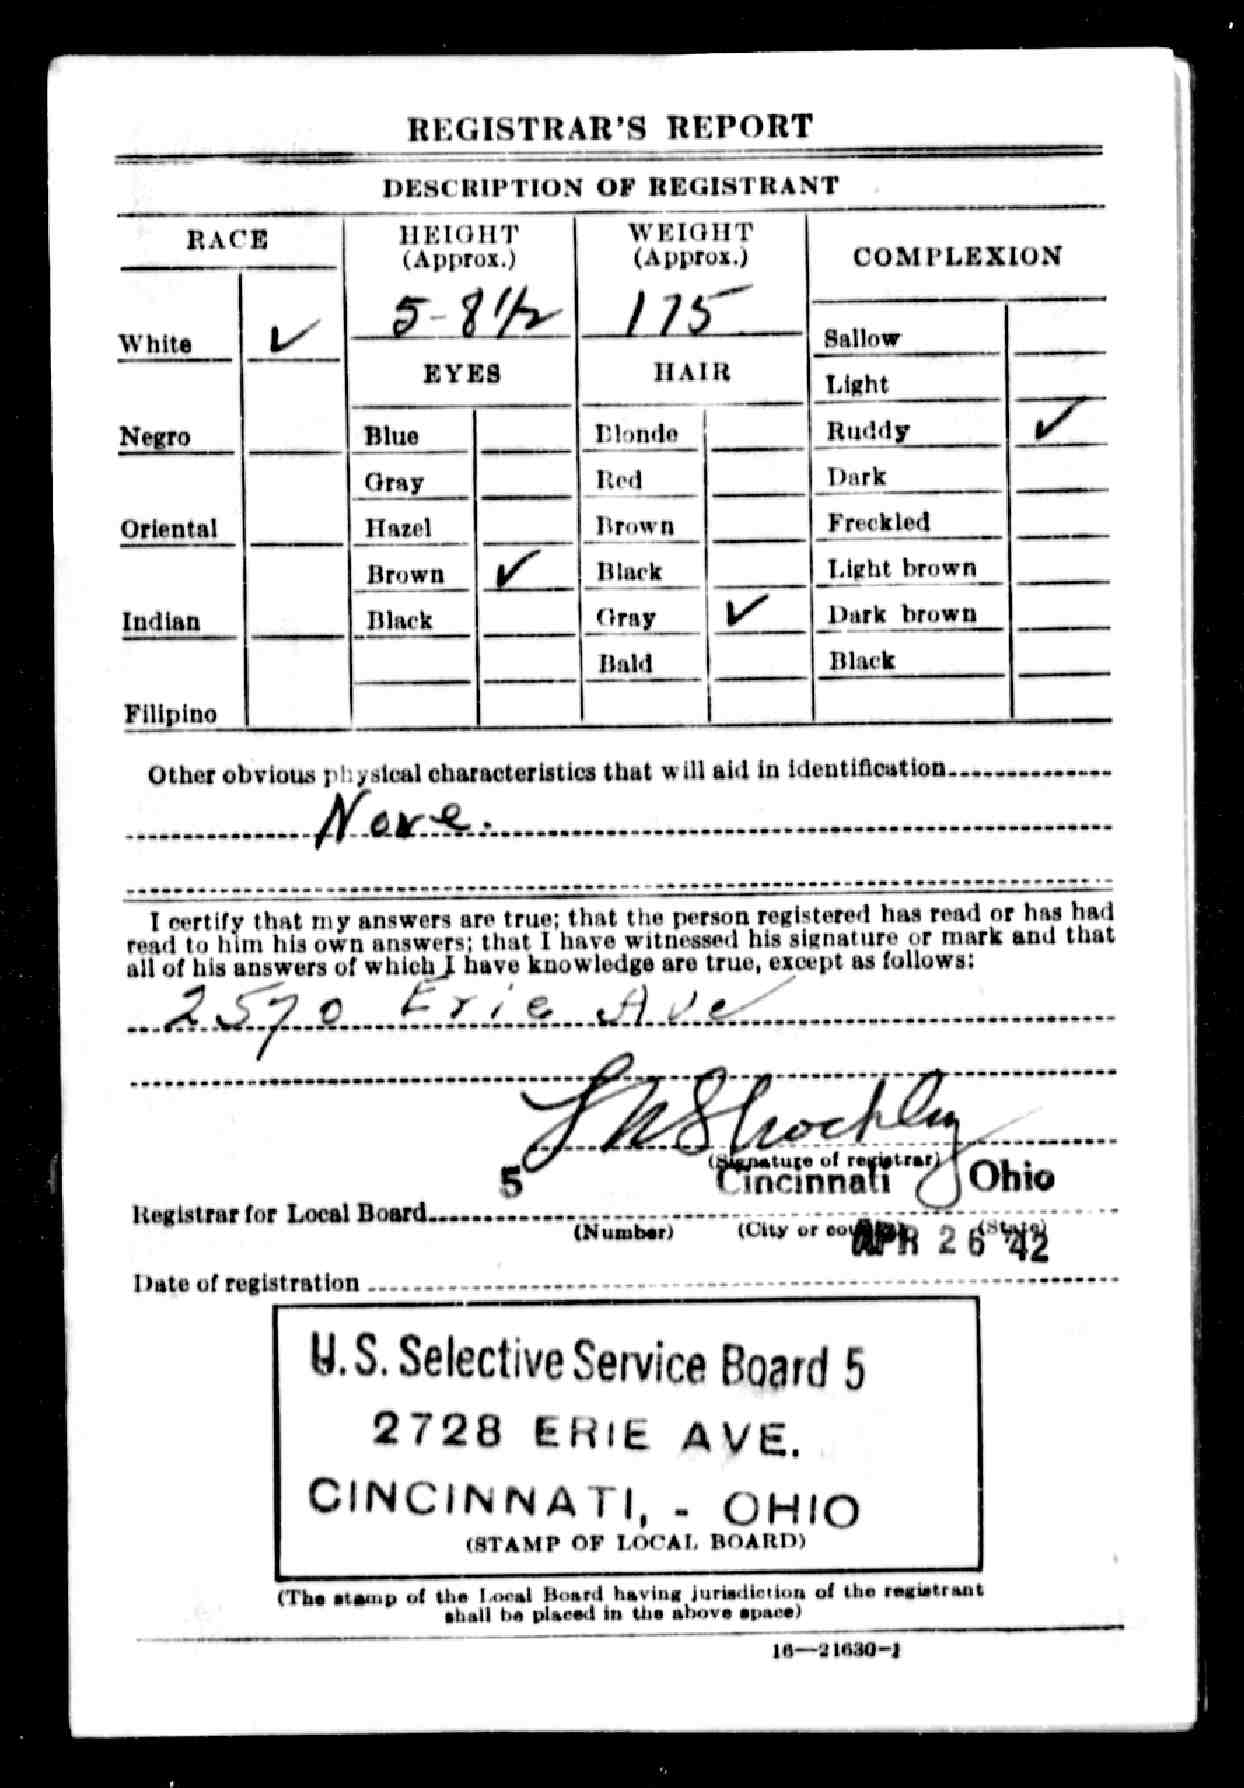 REGISTRAR'S REPORT
DESCRIPTION OF REGISTRANT
RACE
White ✓
Negro
Oriental
Indian
Filipino
HEIGHT
(Approx.)
5-8 1/2
EYES
Blue
Gray
Hazel
Brown ✓
Black
WEIGHT
(Approx.)
175
HAIR
Blonde
Red
Brown
Black
Gray ✓
Bald
COMPLEXION
Sallow
Light
Ruddy ✓
Dark
Freckled
Light brown
Dark brown
Black
Other obvious physical characteristics that will aid in identification
None.
I certify that my answers are true; that the person registered has read or has had
read to him his own answers; that I have witnessed his signature or mark and that
all of his answers of which I have knowledge are true, except as follows:
2570 Erie Ave
Shockley
(Signature of registrar)
5 Cincinnati Ohio
Registrar for Local Board
(Number) (City or county) (State)
APR 26 '42
Date of registration
U.S. Selective Service Board 5
2728 ERIE AVE.
CINCINNATI, - OHIO
(STAMP OF LOCAL BOARD)
(The stamp of the Local Board having jurisdiction of the registrant
shall be placed in the above space)
16—21630-1